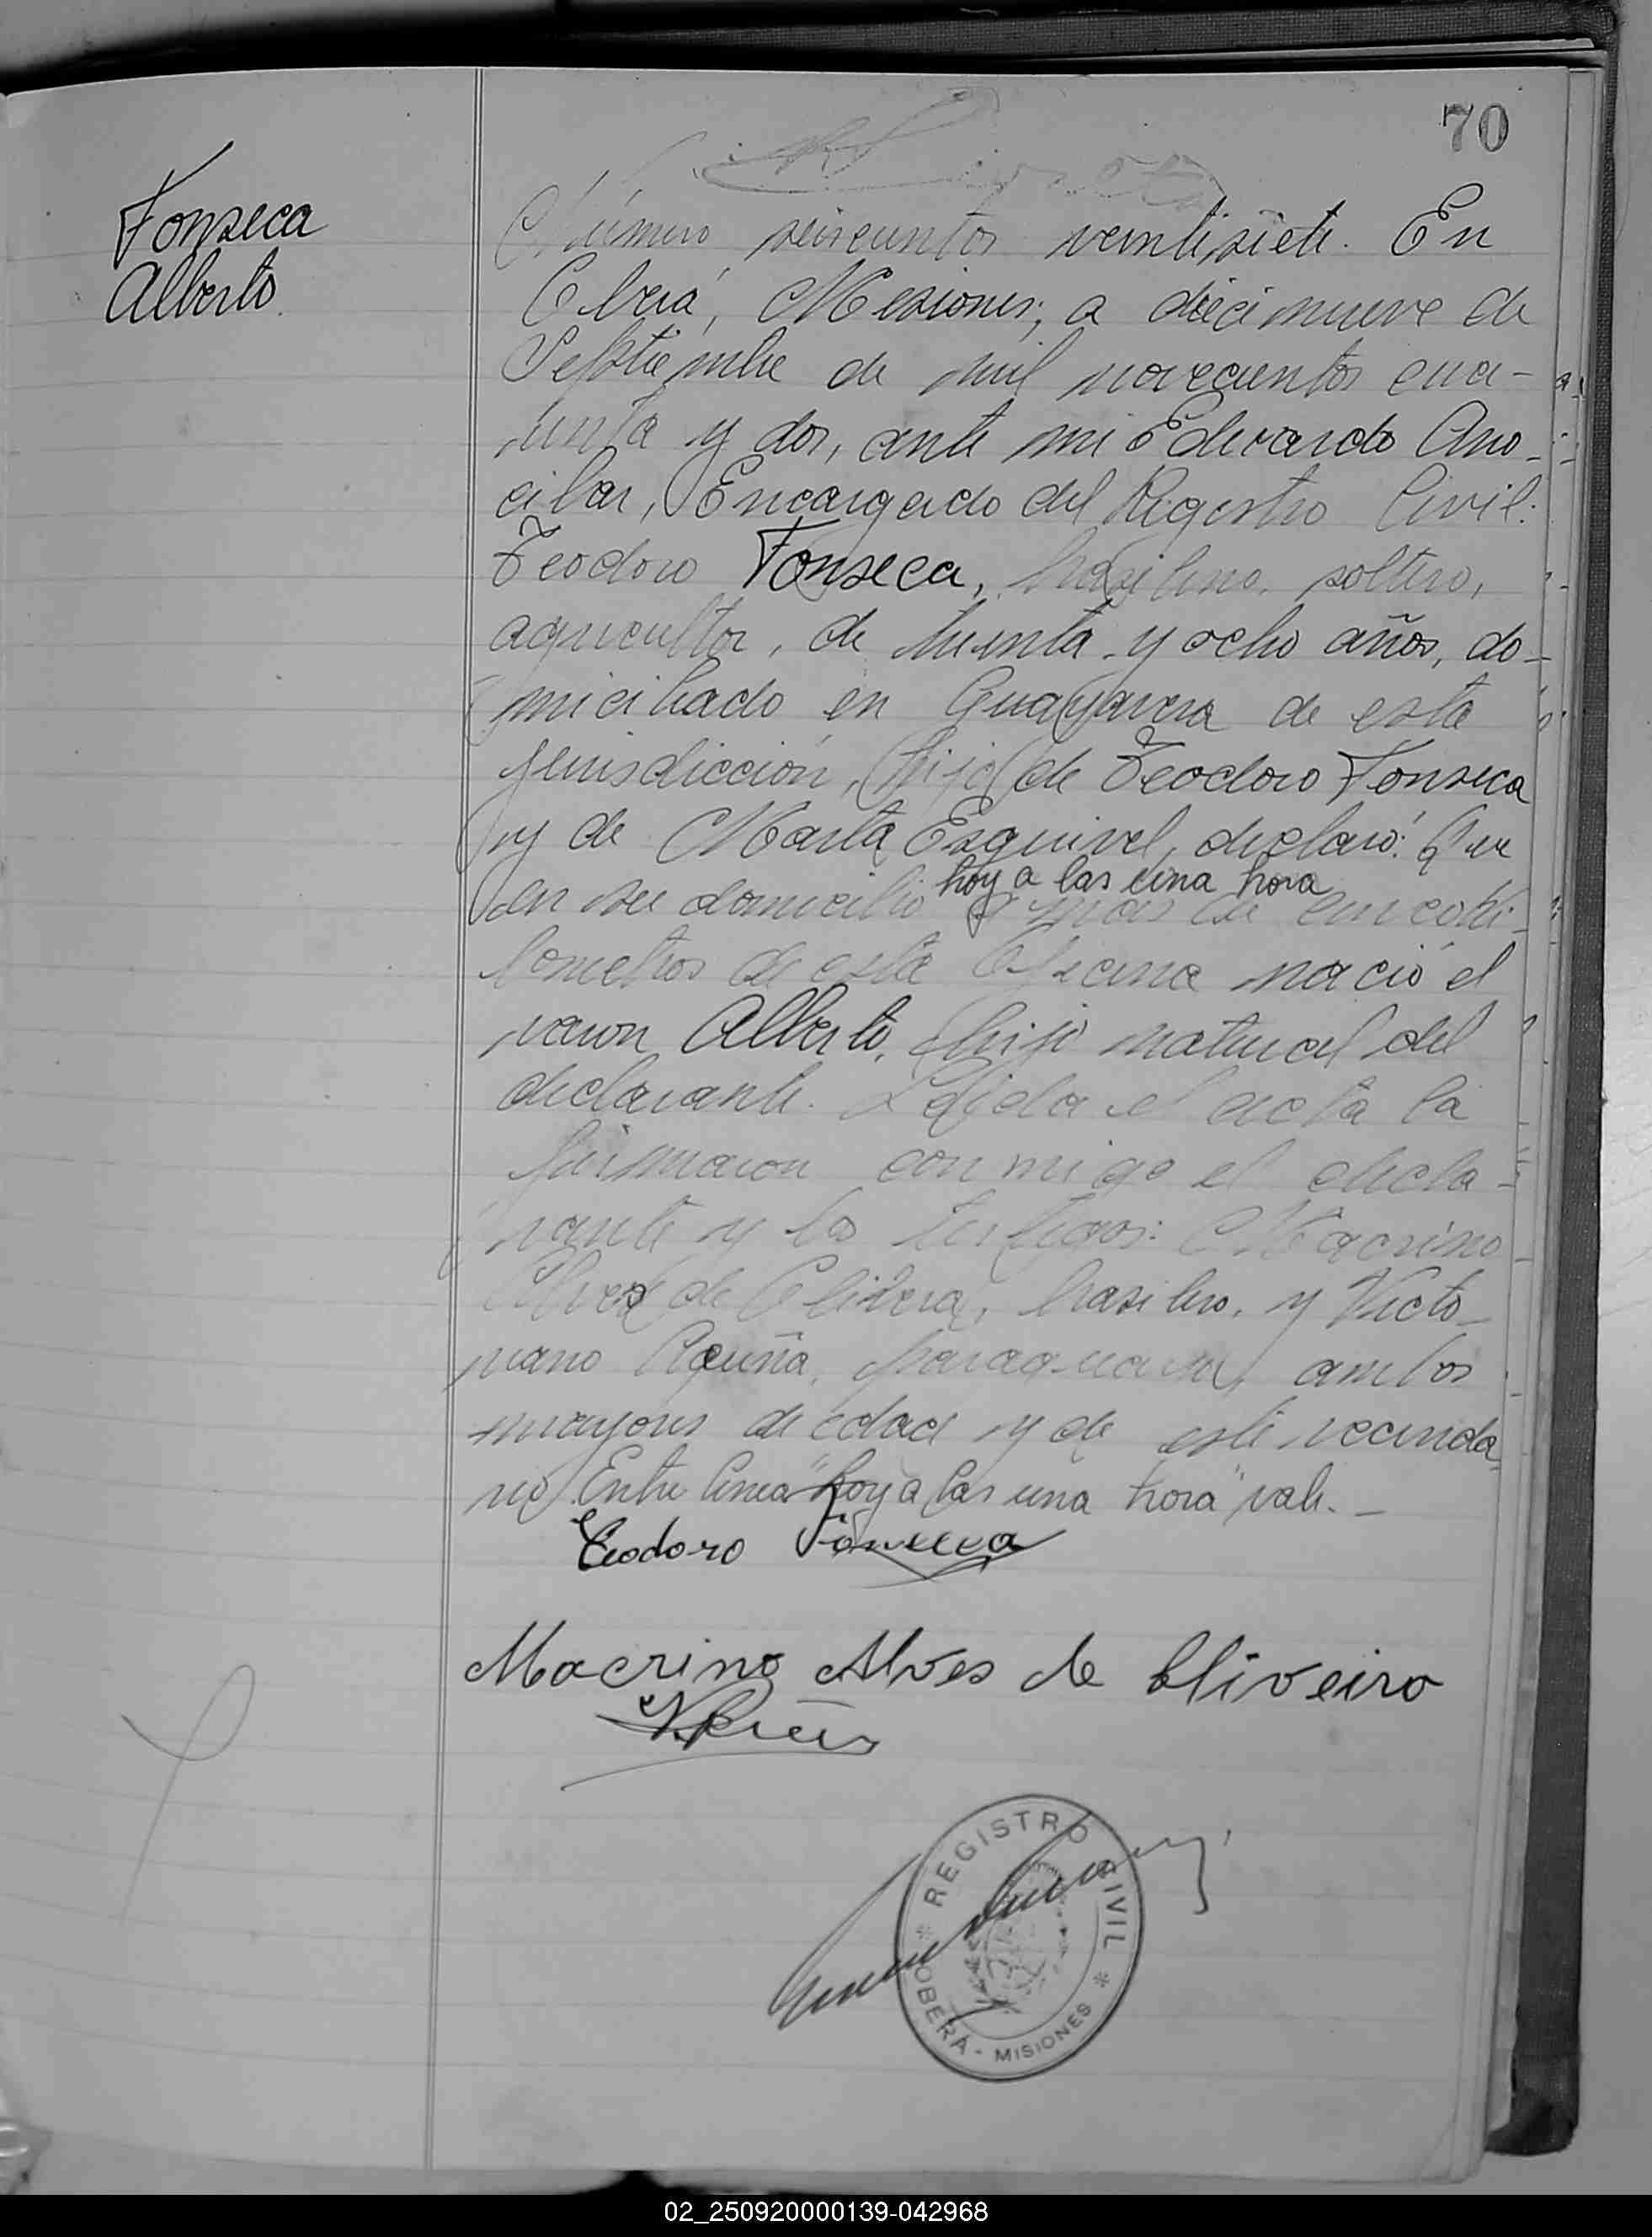 70
Fonseca
Alberto.
Número seiscientos veintisiete. En
Oberá, Misiones, a diecinueve de
Septiembre de mil novecientos cua-
renta y dos, ante mi Eduardo Ano-
cibar, Encargado del Registro Civil:
Teodoro Fonseca, brasilero, soltero,
agricultor, de treinta y ocho años, do-
miciliado en Guayavera de esta
jurisdicción, hijo de Teodoro Fonseca
y de Marta Esquivel, declaró: Que
hoy a las una hora
en su domicilio a mas de cinco ki-
lometros de esta Oficina nació el
varon Alberto, hijo natural del
declarante. Leida el acta la
firmaron conmigo el decla-
rante y los testigos: Macrino
Alves de Olivera, brasilero, y Victo-
riano Acuña, paraguayo, ambos
mayores de edad y de este vecinda
rio. Entre linea "hoy a las una hora" vale. -
Teodoro Fonseca
Macrino Alves de Oliveira
REGISTRO CIVIL
OBERÁ - MISIONES
02_250920000139-042968